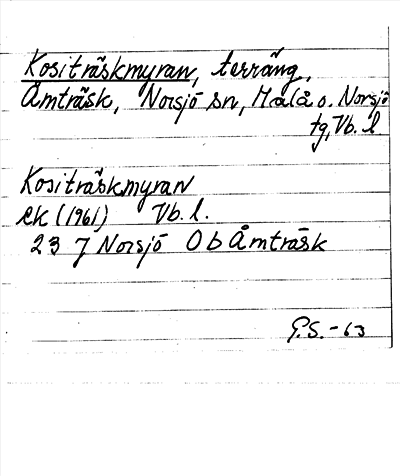 Kositräskmyran, terräng,
Åmträsk, Norsjö sn, Malå o. Norsjö
tg, Vb. l.
Kositräskmyran
ek (1961) Vb. l.
23 J Norsjö Ob Åmträsk
G.S. -63